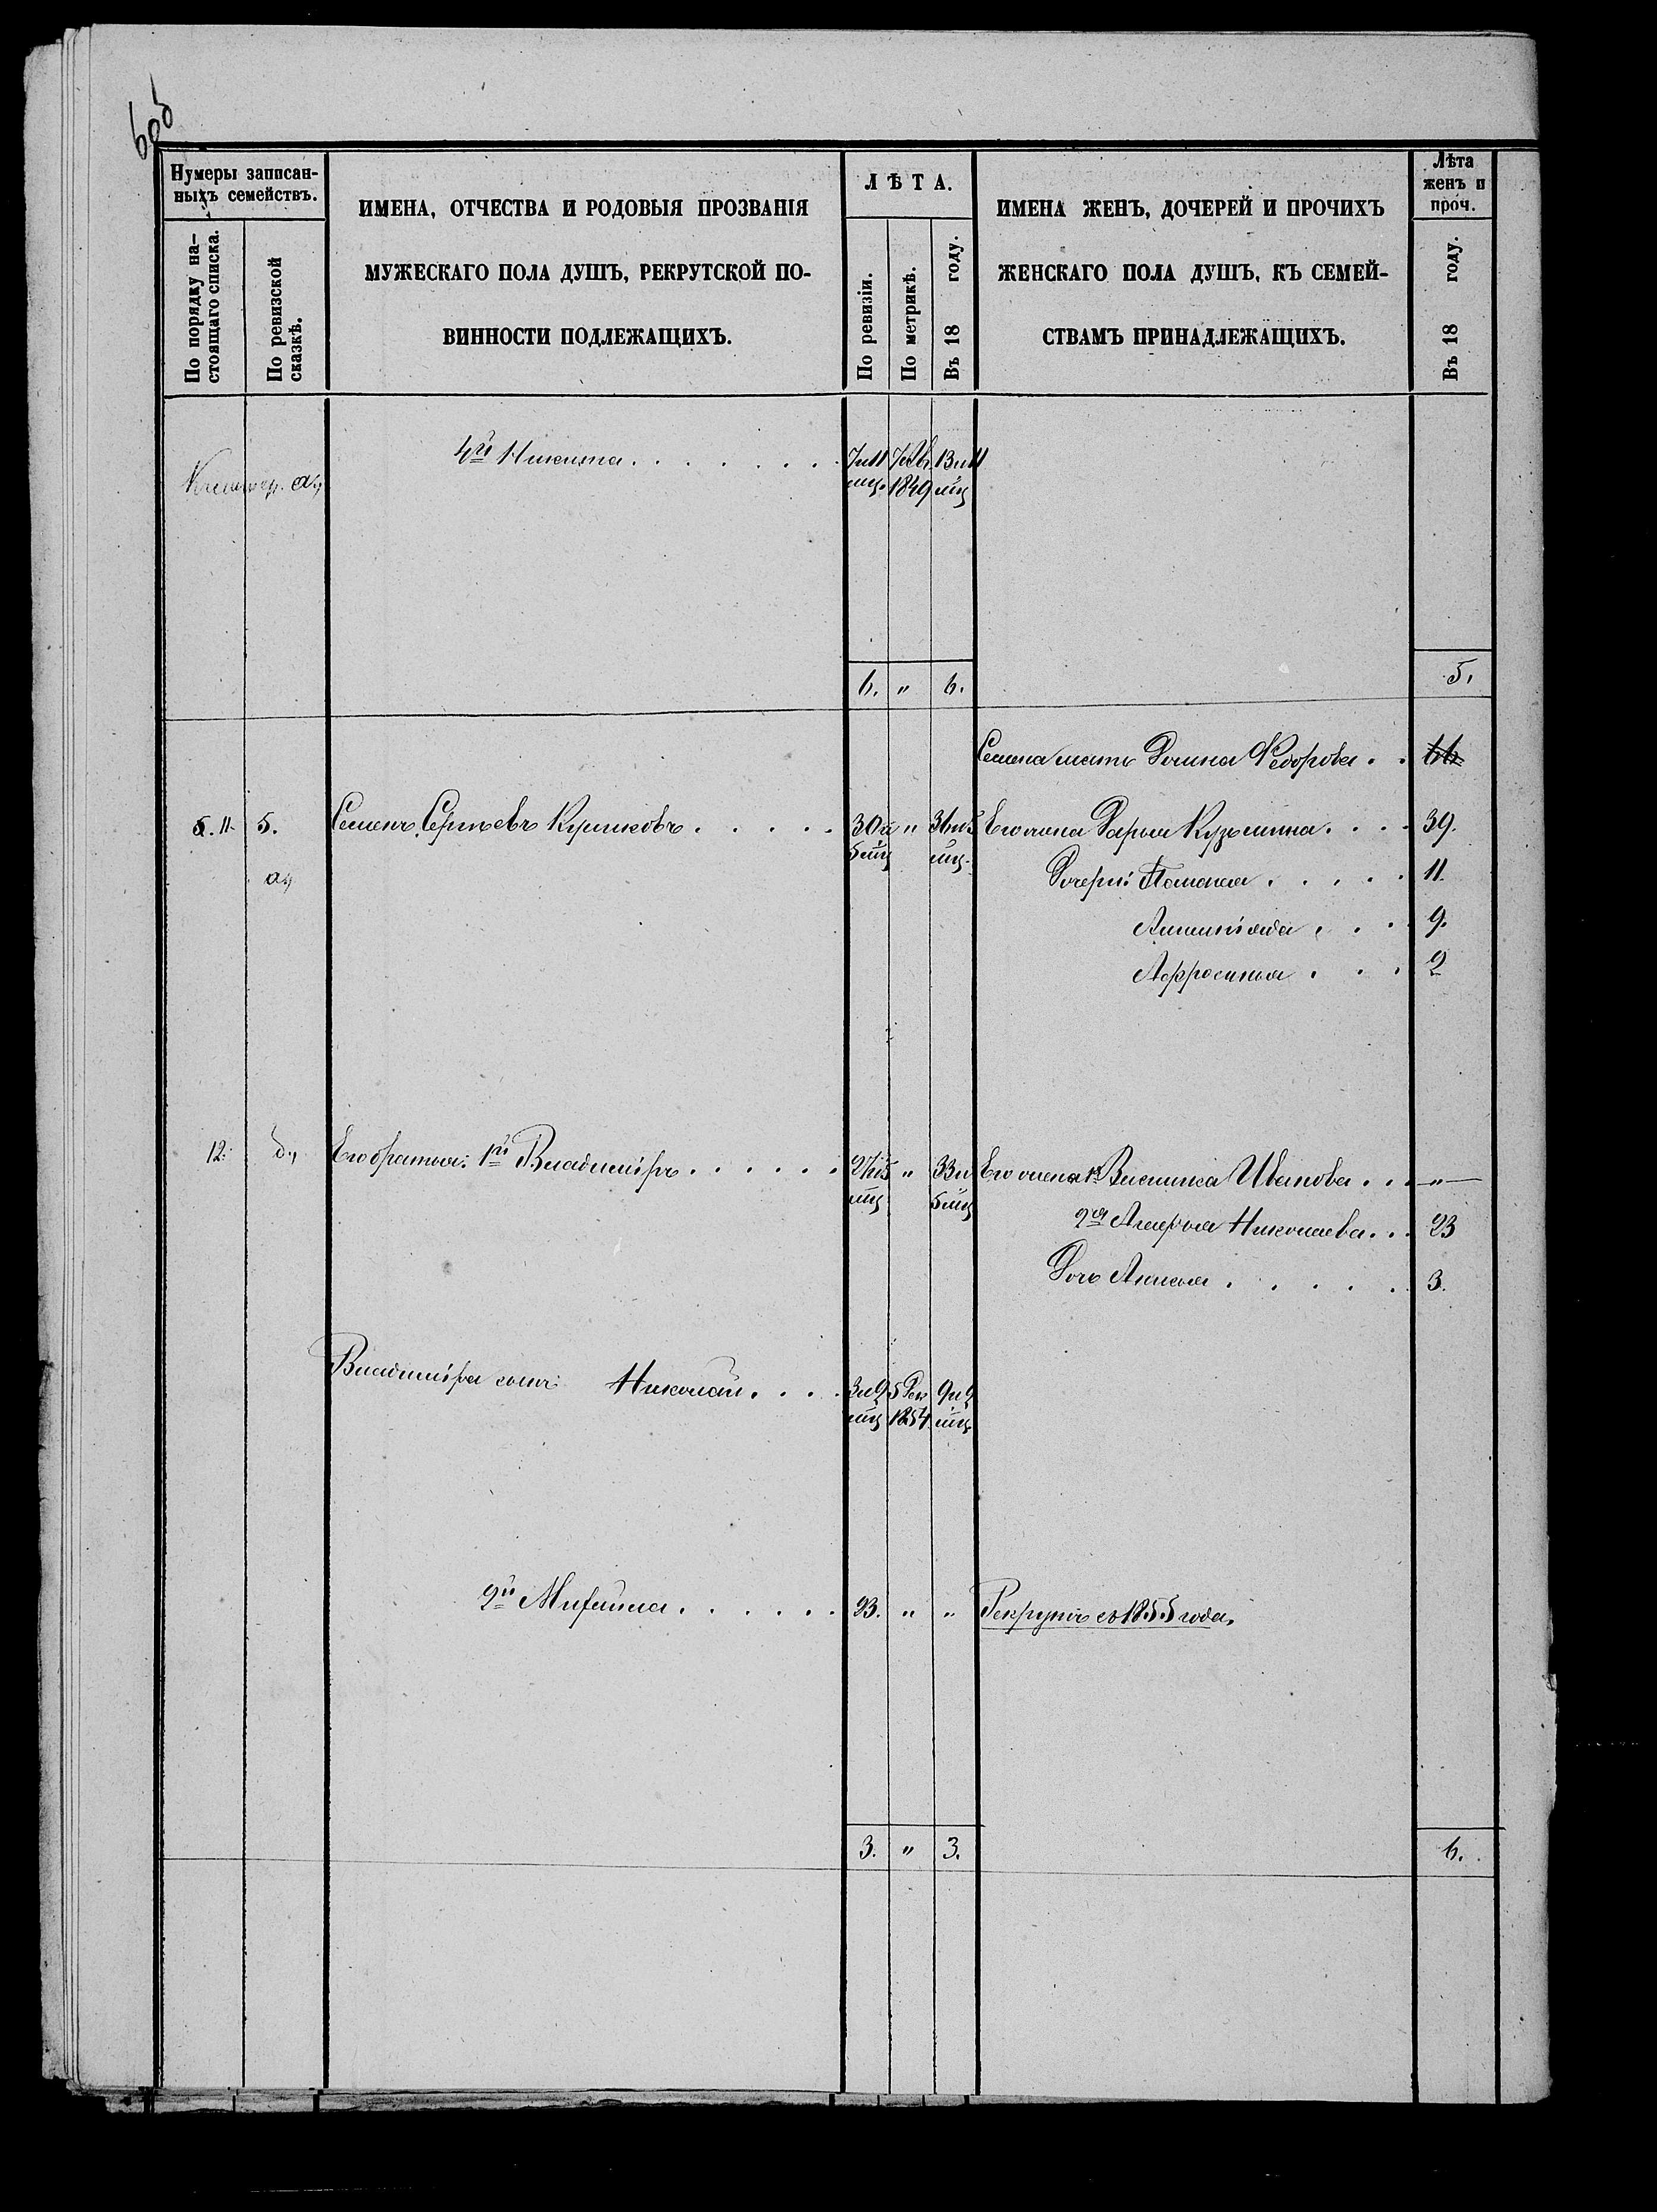 Нумеры записан-
ныхъ семействъ.
По порядку на-
стоящаго списка.
По ревизской
сказкѣ.
ИМЕНА, ОТЧЕСТВА И РОДОВЫЯ ПРОЗВАНІЯ
МУЖЕСКАГО ПОЛА ДУШЪ, РЕКРУТСКОЙ ПО-
ВИННОСТИ ПОДЛЕЖАЩИХЪ.
ЛѢТА.
По ревизіи.
По метрикѣ.
Въ 18 году.
ИМЕНА ЖЕНЪ, ДОЧЕРЕЙ И ПРОЧИХЪ
ЖЕНСКАГО ПОЛА ДУШЪ, КЪ СЕМЕЙ-
СТВАМЪ ПРИНАДЛЕЖАЩИХЪ.
Лѣта
женъ и
проч.
Въ 18 году.
4й Никита . . . . . . . 7 и 11 13 и 11
мц. 1849 мц
а,
6. " 6. 5.
Семена мать Домна Федорова . . 66
5. 11. 5. Семенъ Сергѣевъ Куликовъ . . . . . 30 и " 36 и 5 Его жена Дарья Кузьмина . . . . 39.
5 мц мц.
а, Дочери: Пелагея . . . . . 11.
9.
Афросинья . . . 2
12. б, Его братья: 1й Владиміръ . . . . . . 27 и 5 " 33 и Его жена 1я Василиса Иванова . . . "
мц 5 мц
2я Марья Николаева . . . 23
Дочь . . . . . 3.
Владиміра сынъ Николай . . . . 3 и 9 5 Дек 9 и 9
мц 1854 мц
2й Михайла . . . . . . 23. " " Рекрутъ съ 1855 года.
3. " 3. 6.